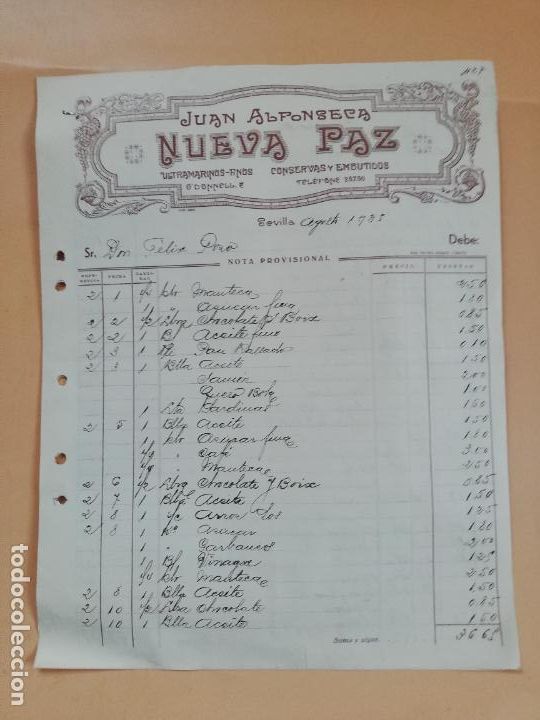 JUAN ALFONSECA
NUEVA PAZ
ULTRAMARINOS-FINOS CONSERVAS Y EMBUTIDOS
O'DONNELL, 2 TELEFONO
Sevilla Agosto 1935
Sr. Don Felix Pozo Debe:
NOTA PROVISIONAL
FECHA PRECIO
2 1 Manteca 2,50
1 " Azucar fina 1.80
2 2 Lbra Chocolate Boix 0.85
2 2 1 Bl Aceite fino 1.50
2 3 1 Pan Rallado 0.10
2 3 1 Blla Aceite 1.50
2.00
Queso Bola 1.00
1 Lta Sardinas 1.50
2 5 1 Blla Aceite 1.50
1 klo Azucar fina 1.80
" Café 3.00
" Manteca 2.50
2 6 Lbra Chocolate Boix 0.85
2 7 1 Blla Aceite 1.50
2 8 1 Arroz 1.25
2 8 1 Ko Azucar 1.80
1 " Garbanzos 2,00
1 Bl Vinagre 1.25
klo Manteca 2.50
2 8 1 Blla Aceite 1,50
2 10 Lbra Chocolate 0.85
2 10 1 Blla Aceite 1.50
Suma y sigue. 36 65
todocoleccion